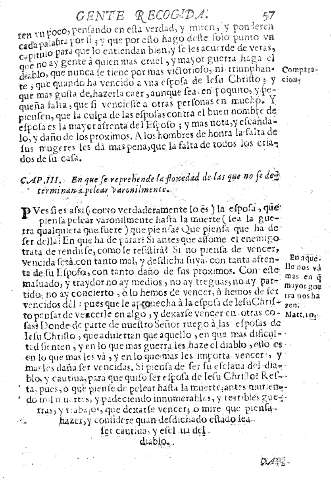 GENTE RECOGIDA. 57
ten vn poco, pensando en esta verdad, y miren, y ponderen
cada palabra por si; y que por esto hago deste solo punto vn
capitulo para que lo entiendan bien, y se les acuerde de veras,
que no ay gente à quien mas cruel, y mayor guerra haga el
diablo, que nunca se tiene por mas victorioso, ni triumphan-
te, que quando ha vencido à vna esposa de Iesu Christo; y
que mas gusta de hazerla caer, aunque sea en poquito, y pe-
queña falta, que si venciesse à otras personas en mucho. Y
piensen, que la culpa de las esposas contra el buen nombre de
esposa es la mayor afrenta del Esposo; y mas nota, y escanda-
lo, y daño de los proximos. A los hombres de honra la falta de
sus mugeres les dà mas pena, que la falta de todos los cria-
dos de su casa.
Compara-
cion,
CAP. III. En que se reprehende la floxedad de las que no se de-
terminan à pelear varonilmente.
PVes si es assi (como verdaderamente lo es) la esposa, que
piensa pelear varonilmente hasta la muerte (sea la gue-
rra qualquiera que fuere) que piensa? Que piensa que ha de
ser della? En que ha de parar? Si antes que assome el enemigo
trata de rendirse, como le resistirà? Si no piensa de vencer,
vencida serà con tanto mal, y desdicha suya, con tanta afren-
ta de su Esposo, con tanto daño de sus proximos. Con este
malvado, y traydor no ay medios, no ay treguas, no ay par-
tido, no ay concierto, ò lo hemos de vencer, ò hemos de ser
vencidos del: pues que le aprovecha à la esposa de Iesu Chris-
to pensar de vencerle en algo, y dexarse vencer en otras co-
sas? Donde de parte de nuestro Señor ruego à las esposas de
Iesu Christo, que adviertan que aquello, en que mas dificul-
tad sienten, y en lo que mas guerra les haze el diablo, esso es
en lo que mas les và, y en lo que mas les importa vencer, y
mas les daña ser vencidas. Si piensa de ser esclava del dia-
blo, y cautiva, para que quiso ser esposa de Iesu Christo? Res-
ta, pues, ò que piense de pelear hasta la muerte, antes murien-
do mil muertes, y padeciendo innumerables, y terribles gue-
rras, y trabajos, que dexarse vencer; ò mire que piensa
hazer, y considere quan desdichado estado sea
ser cautiva, y esclava del
diablo.
En aque-
llo nos và
mas en q̃
mayor gue-
rra nos ha-
zen.
Matt. 10.